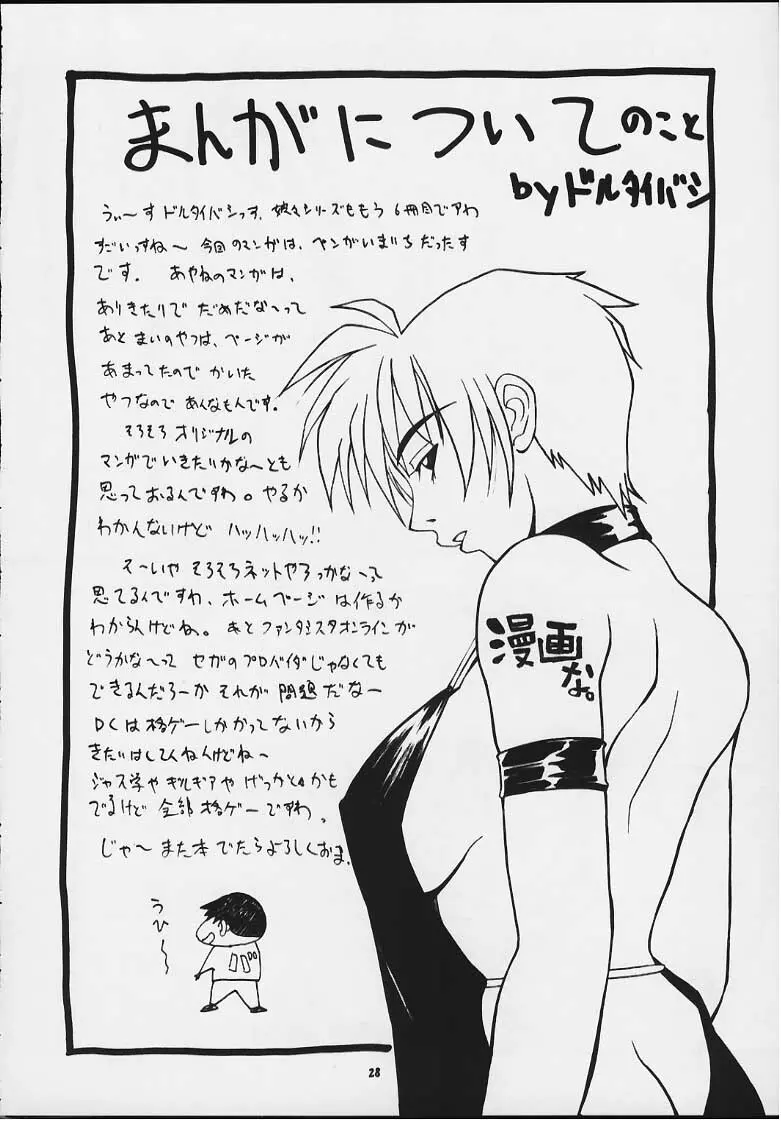 まんがについてのこと
byドルタイバシ
うぃ〜すドルタイバシっす、娘々シリーズももう6冊目でアわ
すごいっすね〜 今回のマンガは、ペンがいまいちだったす
です。 あやねのマンガは、
ありきたりで だめだな〜って
あと まいのやつは、ページが
あまってたので かいた
やつなので あんなもんです。
そろそろ オリジナルの
マンガでいきたいかな〜とも
思っておるんですわ。やるか
わかんないけど ハッハッハッ!!
そ〜いや そろそろネットやろっかな〜って
思てるんですわ、ホームページは作るか
わからんけどね。あと ファンタシスタオンラインが
どうかな〜って セガのプロバイダじゃなくても
できるんだろーか それが 問題 だなー
DCは格ゲーしかかってないから
きたいはしてんねんけどね〜
ジャス学や ギルギアや げっかとuかも
でるけど 全部格ゲーですわ。
じゃ〜 また本 でたらよろしくおま。
漫画
な。
うひ〜〜
28